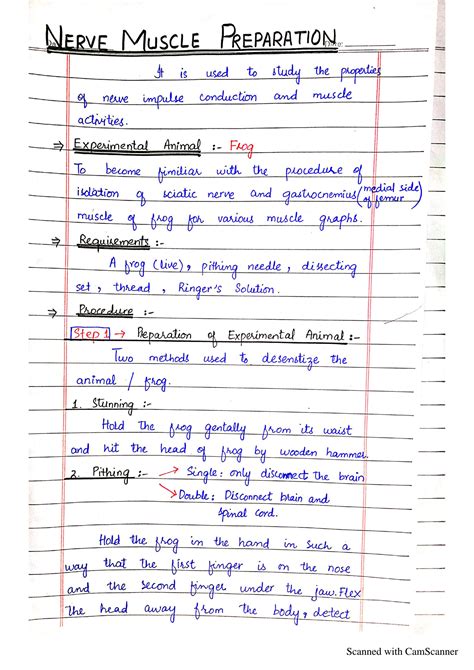 NERVE MUSCLE PREPARATION
It is used to study the properties
of nerve impulse conduction and muscle
activities.
⇒ Experimental Animal :- Frog
To become fimiliar with the procedure of
isolation of sciatic nerve and gastrocnemius (medial side of femur)
muscle of frog for various muscle graphs.
⇒ Requirements :-
A frog (live), pithing needle, dissecting
set, thread, Ringer's Solution.
⇒ Procedure :-
Step 1 → Preparation of Experimental Animal :-
Two methods used to desenstize the
animal / frog.
1. Stunning :-
Hold the frog gentally from its waist
and hit the head of frog by wooden hammer.
2. Pithing :- → Single: only disconnect the brain
→ Double: Disconnect brain and
spinal cord.
Hold the frog in the hand in such a
way that the first finger is on the nose
and the second finger under the jaw. Flex
the head away from the body, detect
Scanned with CamScanner